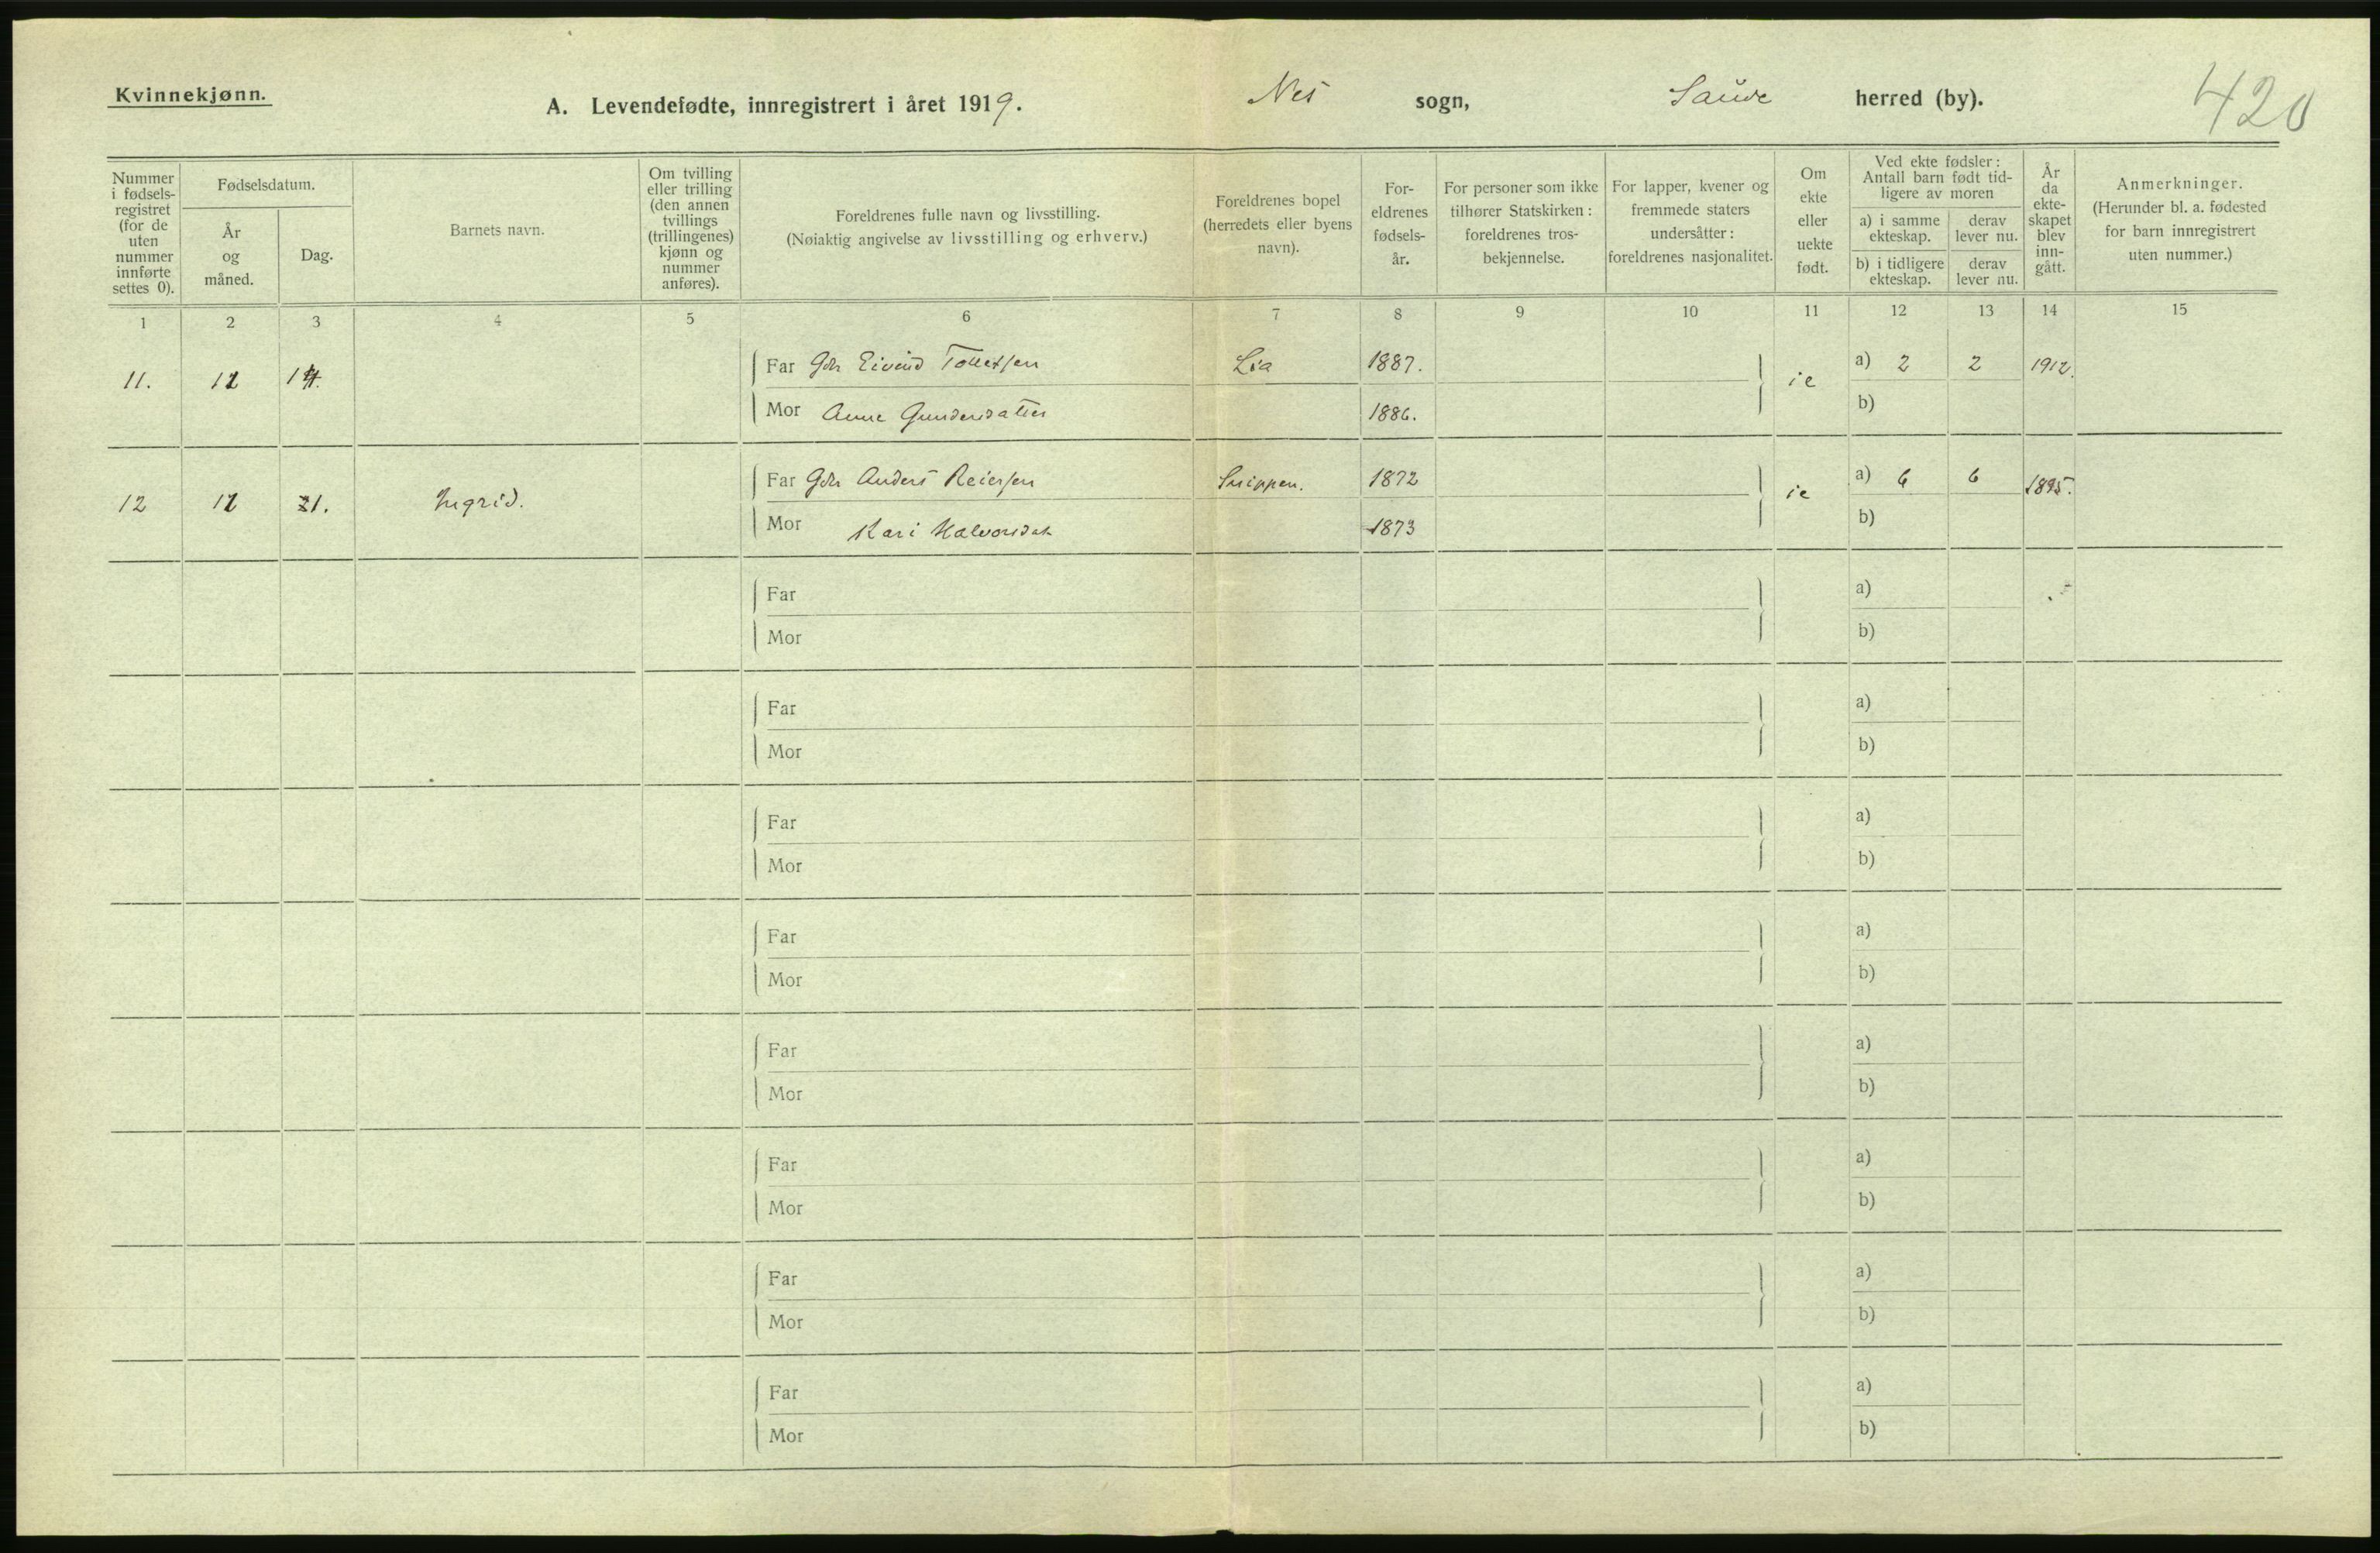 Kvinnekjønn.
A. Levendefødte, innregistrert i året 1919.
Nes sogn, Saude herred (by).
420
Nummer i fødsels-registret (for de uten nummer innførte settes 0).
Fødselsdatum.
År og måned.
Dag.
Barnets navn.
Om tvilling eller trilling (den annen tvillings (trillingenes) kjønn og nummer anføres).
Foreldrenes fulle navn og livsstilling.
(Nøiaktig angivelse av livsstilling og erhverv.)
Foreldrenes bopel (herredets eller byens navn).
For-eldrenes fødsels-år.
For personer som ikke tilhører Statskirken: foreldrenes tros-bekjennelse.
For lapper, kvener og fremmede staters undersåtter: foreldrenes nasjonalitet.
Om ekte eller uekte født.
Ved ekte fødsler: Antall barn født tid-ligere av moren
a) i samme ekteskap.
derav lever nu.
b) i tidligere ekteskap.
derav lever nu.
År da ekte-skapet blev inn-gått.
Anmerkninger.
(Herunder bl. a. fødested for barn innregistrert uten nummer.)
1 2 3 4 5 6 7 8 9 10 11 12 13 14 15
Far Gdr Eivind Tolletsen Lia 1887. a) 2 2 1912.
11. 12 14. ie
Mor Anne Gundersdatter 1886. b)
Far Gdr Anders Reiersen Snippen. 1872 a) 6 6 1895.
12 12 21. Ingrid. ie
Mor Kari Halvorsdat 1873 b)
Far a)
Mor b)
Far a)
Mor b)
Far a)
Mor b)
Far a)
Mor b)
Far a)
Mor b)
Far a)
Mor b)
Far a)
Mor b)
Far a)
Mor b)